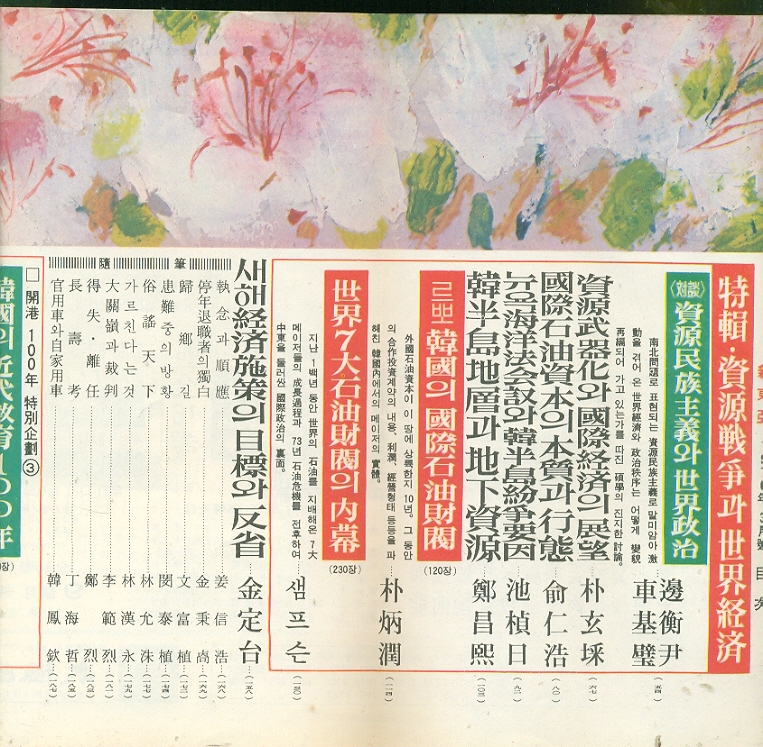 特輯·資源戰爭과 世界経済
〈対談〉資源民族主義와 世界政治
南北問題로 표현되는 資源民族主義로 말미암아 激
動을 겪어 온 世界經濟와 政治秩序는 어떻게 變貌
再編되어 가고 있는가를 따진 碩學의 진지한 討論。
邊衡尹
車基璧
(五四)
資源武器化와 國際經済의 展望
朴玄埰
(六七)
國際石油資本의 本質과 行態
兪仁浩
(八○)
뉴욕海洋法会議와 韓半島紛爭要因
池楨日
(九二)
韓半島地層과 地下資源
鄭昌熙
(一○三)
르뽀 韓國의 國際石油財閥
(120장)
外國石油資本이 이 땅에 上陸한지 10년。그 동안
의 合作投資계약의 내용、利潤、經營형태 등등을 파
헤친 韓國內에서의 메이저의 實體。
朴炳潤
(一一四)
世界7大石油財閥의 内幕
(230장)
지난 1백년 동안 世界의 石油를 지배해온 7大
메이저들의 成長過程과 73년 石油危機를 전후하여
中東을 둘러싼 國際政治의 裏面。
샘프슨
(一三○)
새해経済施策의 目標와 反省
金定台
(一五八)
隨筆
執念과 順應 姜信浩 (一六八)
停年退職者의 獨白 金秉卨 (一六九)
歸鄕길 文富植
患難중의 방황 閔泰植 (一七四)
俗謠天下 林允洙
가르친다는 것 林漢永
大關嶺과 裁判 李範烈 (一八一)
得失·離任 鄭烈
長壽考 丁海哲
官用車와 自家用車 韓鳳欽 (一八七)
□ 開港 100年 特別企劃 ③
韓國의 近代敎育100年